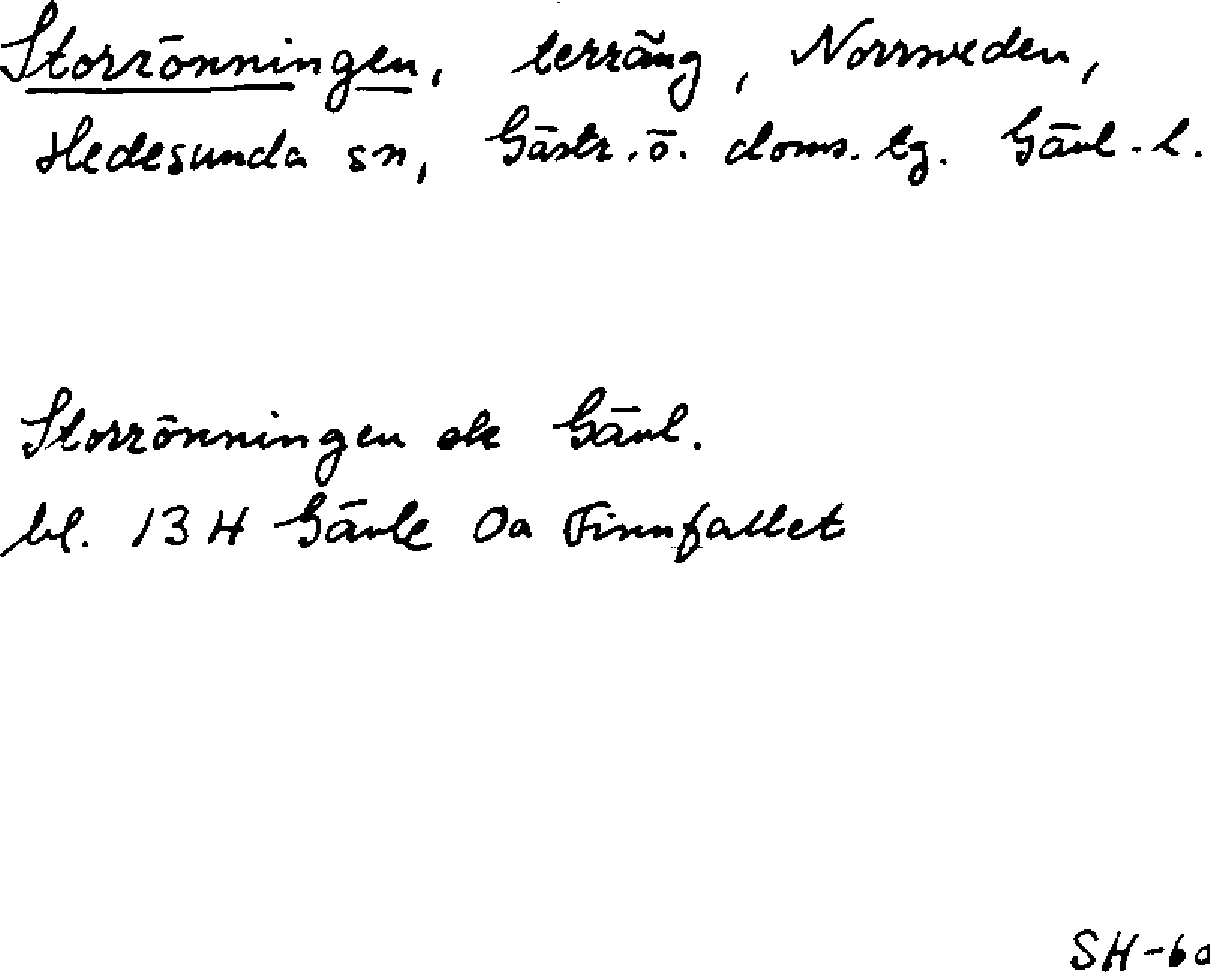 Storrönningen, terräng, Norrsveden,
Hedesunda sn, Gästr. ö. doms. tg. Gävl. l.
Storrönningen ek Gävl.
bl. 13 H Gävle 0a Finnfallet
SH-60